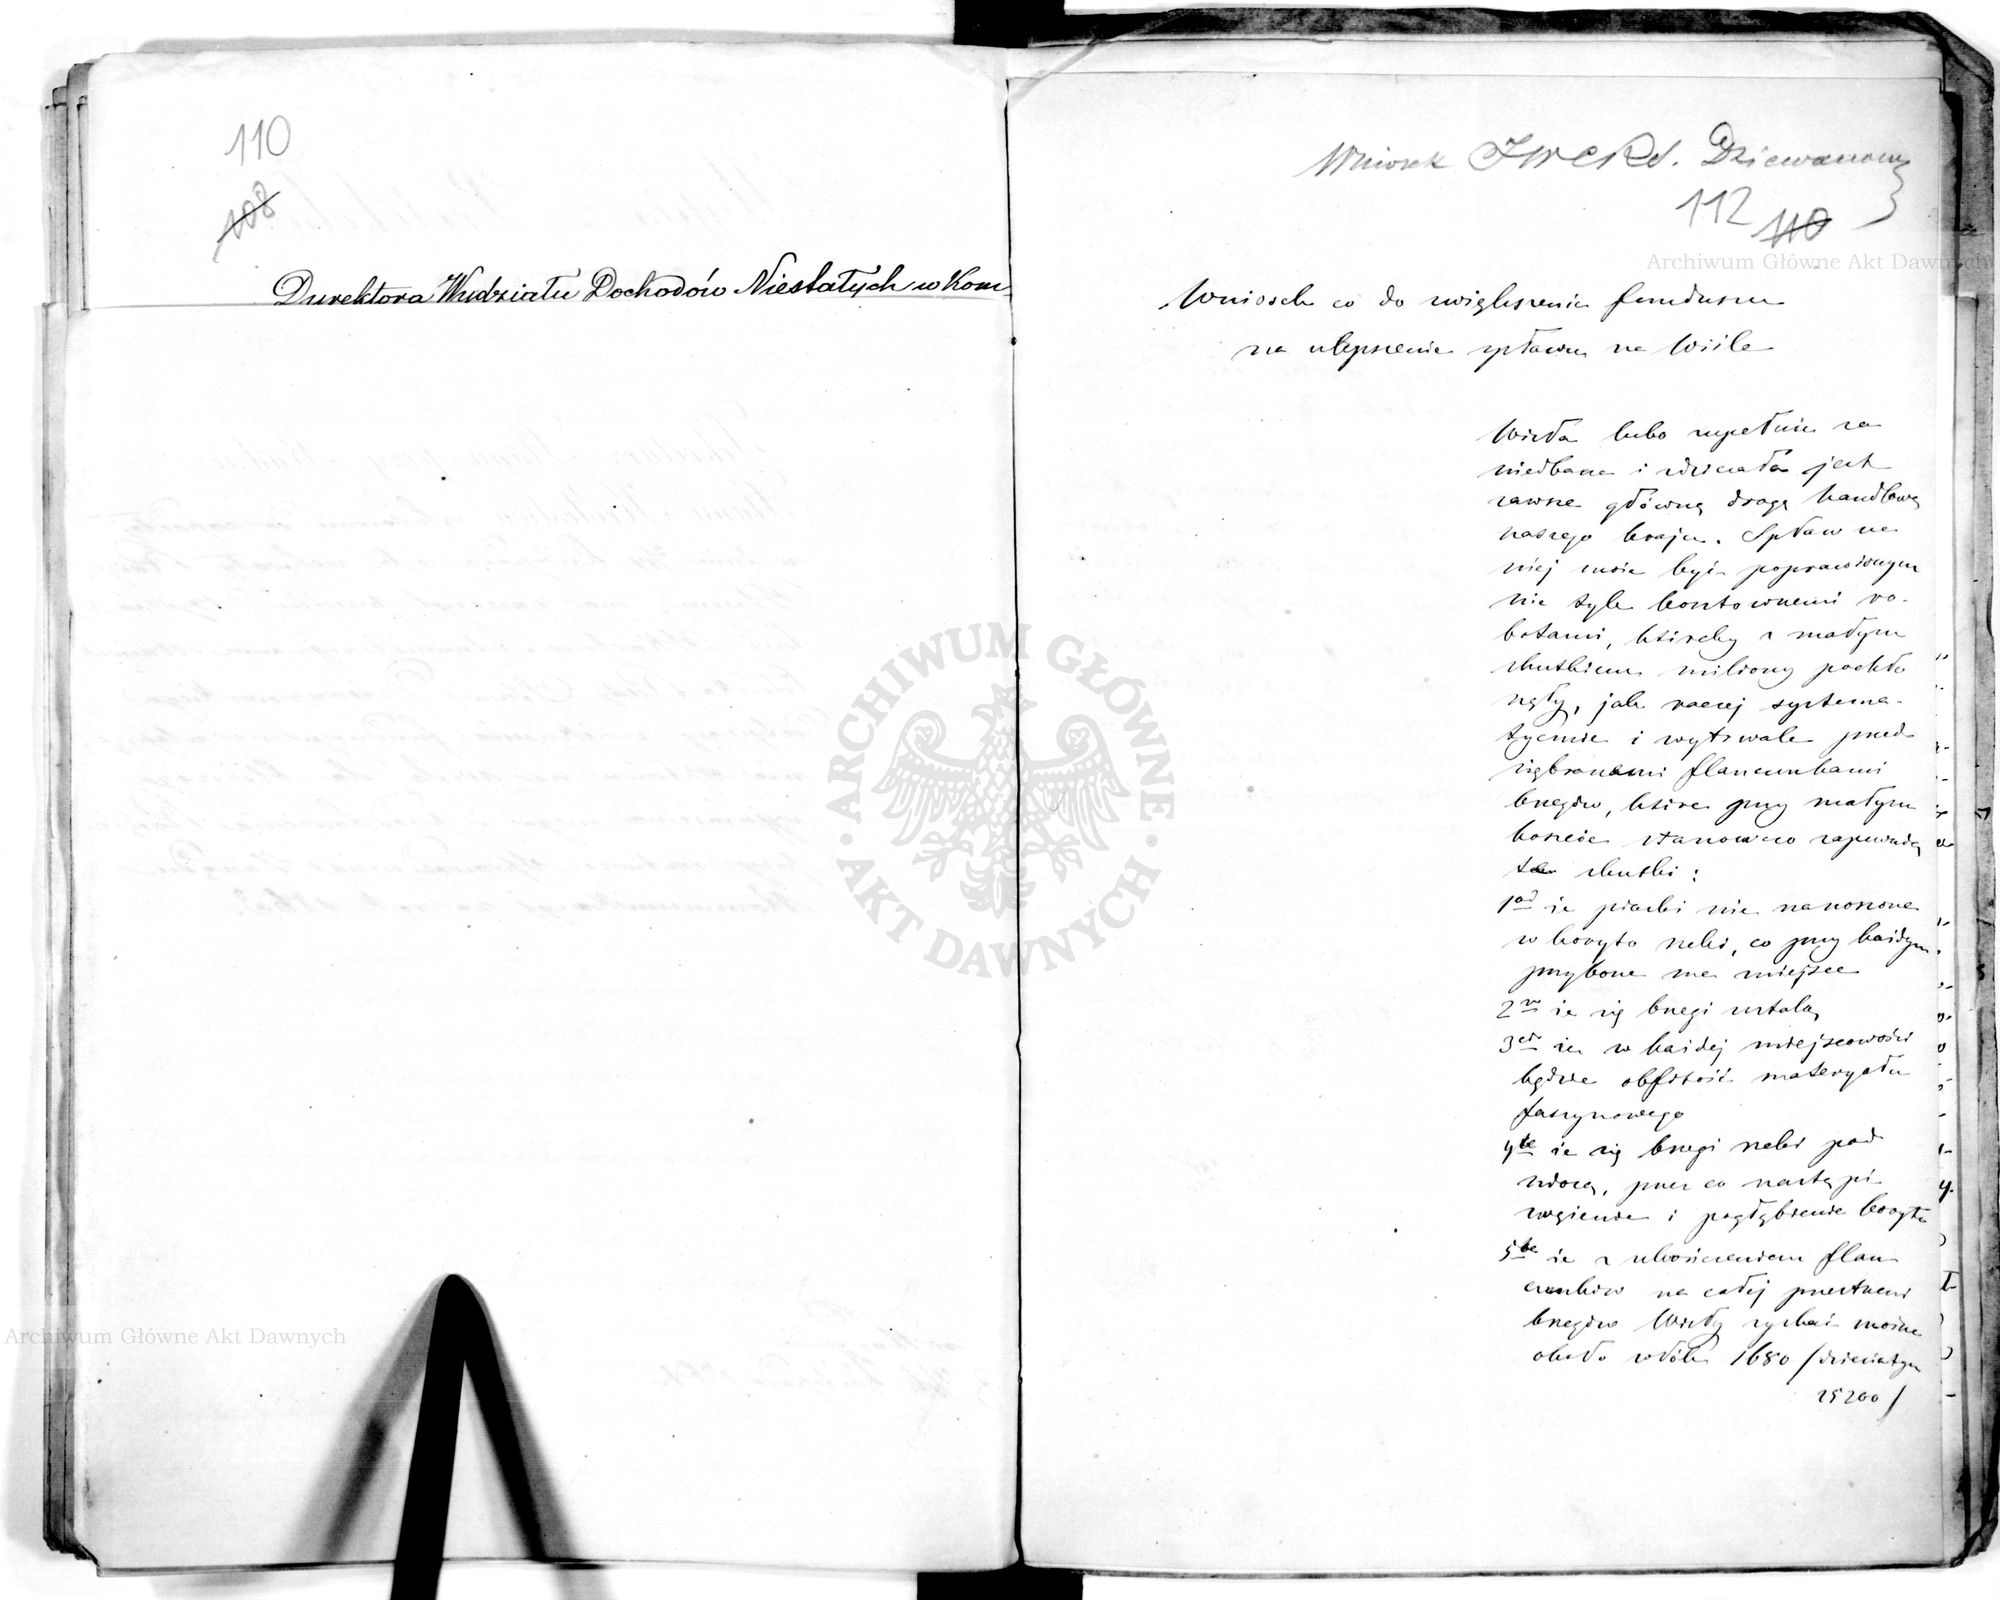 110
108
Dyrektora Wydziału Dochodów Niestałych w Kom
Wniosek JWCRd. Dziewanow
112 110
Archiwum Główne Akt Dawnych
Wniosek co do zwiększenia funduszu
na ulepszenie spławu na Wiśle
Wisła lubo zupełnie za
niedbana i zdziczała jest
zawsze główną drogą handlową
naszego kraju. Spław na
niej może być poprawionym
nie tyle kosztownemi ro-
botami, któreby z małym
skutkiem miliony pochło
nęły, jak raczej systema-
tycznie i wytrwale przed
sięb­ranemi flancunkami
brzegów, które przy małym
koszcie stanowczo zapewnią
te skutki:
1od że piaski nie nanoszone
w koryto rzeki, co przy każdym
przyborze ma miejsce
2re że się brzegi ustalą
3cie że w każdej miejscowości
będzie obfitość materyału
faszynowego
4te że się brzegi rzeki pod
niosą, przez co nastąpi
zwężenie i pogłębienie koryta
5te że z ukończeniem flan
cunków na całej przestrzeni
brzegów Wisły zyskać można
około włók 1680 /dziesiatyn
25200/
ARCHIWUM GŁÓWNE · AKT DAWNYCH ·
Archiwum Główne Akt Dawnych